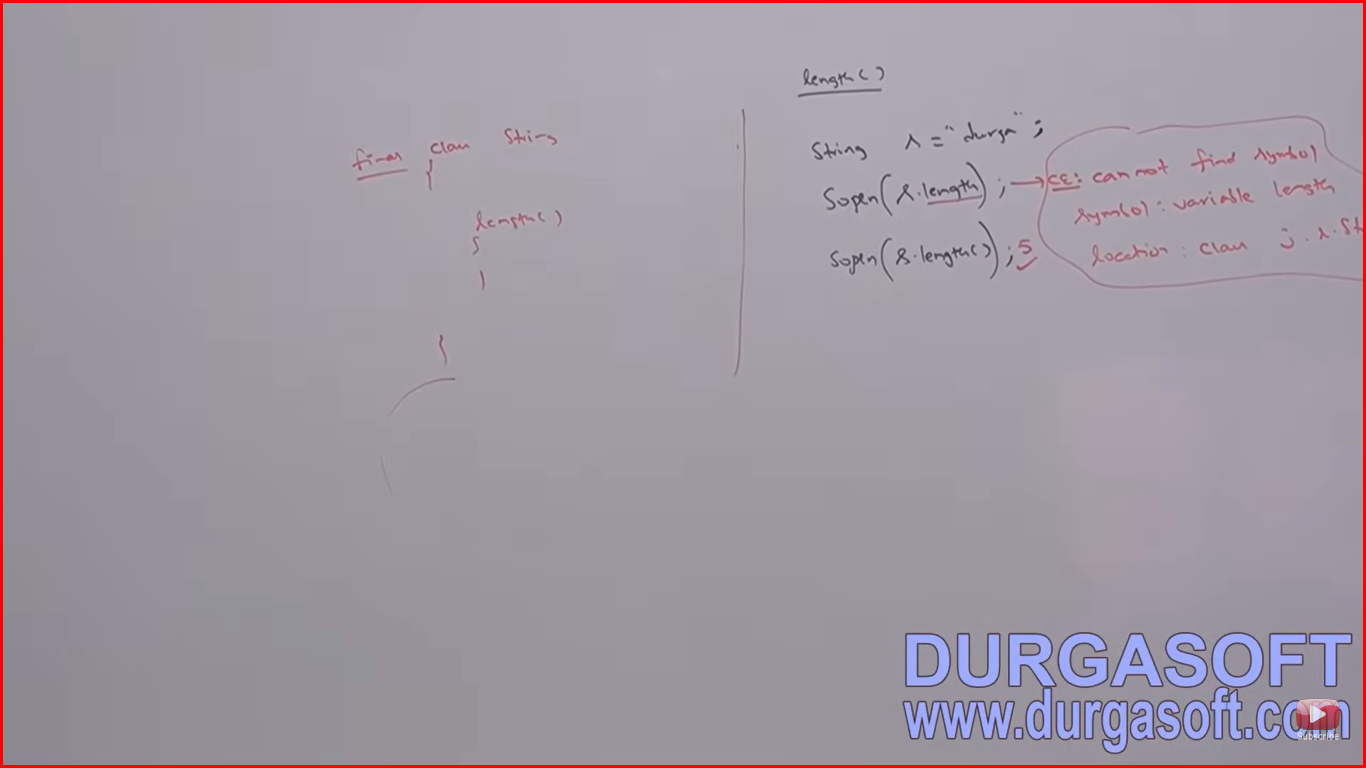 final class String
{
length()
{
}
}
length()
String s = "durga";
Sopln(s.length); → CE: cannot find symbol
symbol: variable length
location: class j.l.St
Sopln(s.length()); 5 ✓
DURGASOFT
www.durgasoft.com
Subscribe